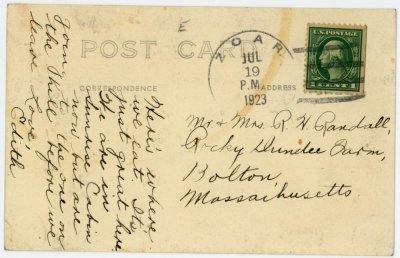 E
POST CARD
CORRESPONDENCE
ADDRESS
ZOAR
JUL
19
P.M.
1923
U.S. POSTAGE
Here's where
we eat. Its
just great here
We are in
Sunrise Cabin
now but are
going to the one on
the Hill before we
leave Love.
Edith
Mr & Mrs. R. H. Randall,
Rocky Dundee Farm,
Bolton
Massaihusetts.